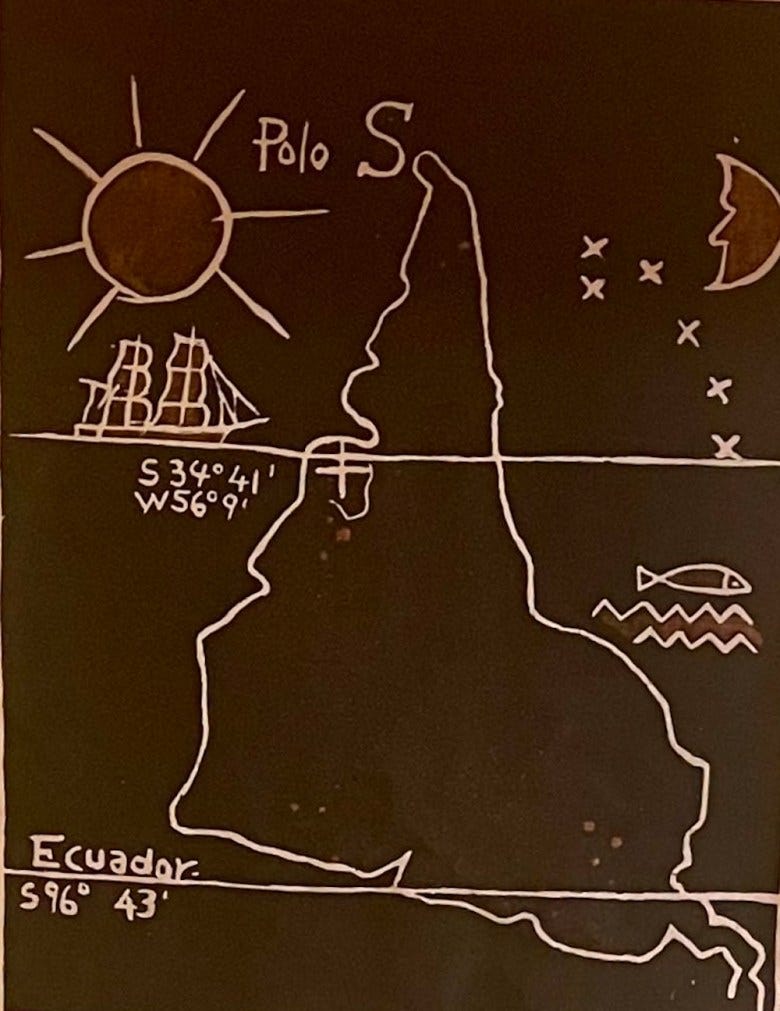 Polo S
S 34° 41'
W 56° 9'
Ecuador.
S 96° 43'